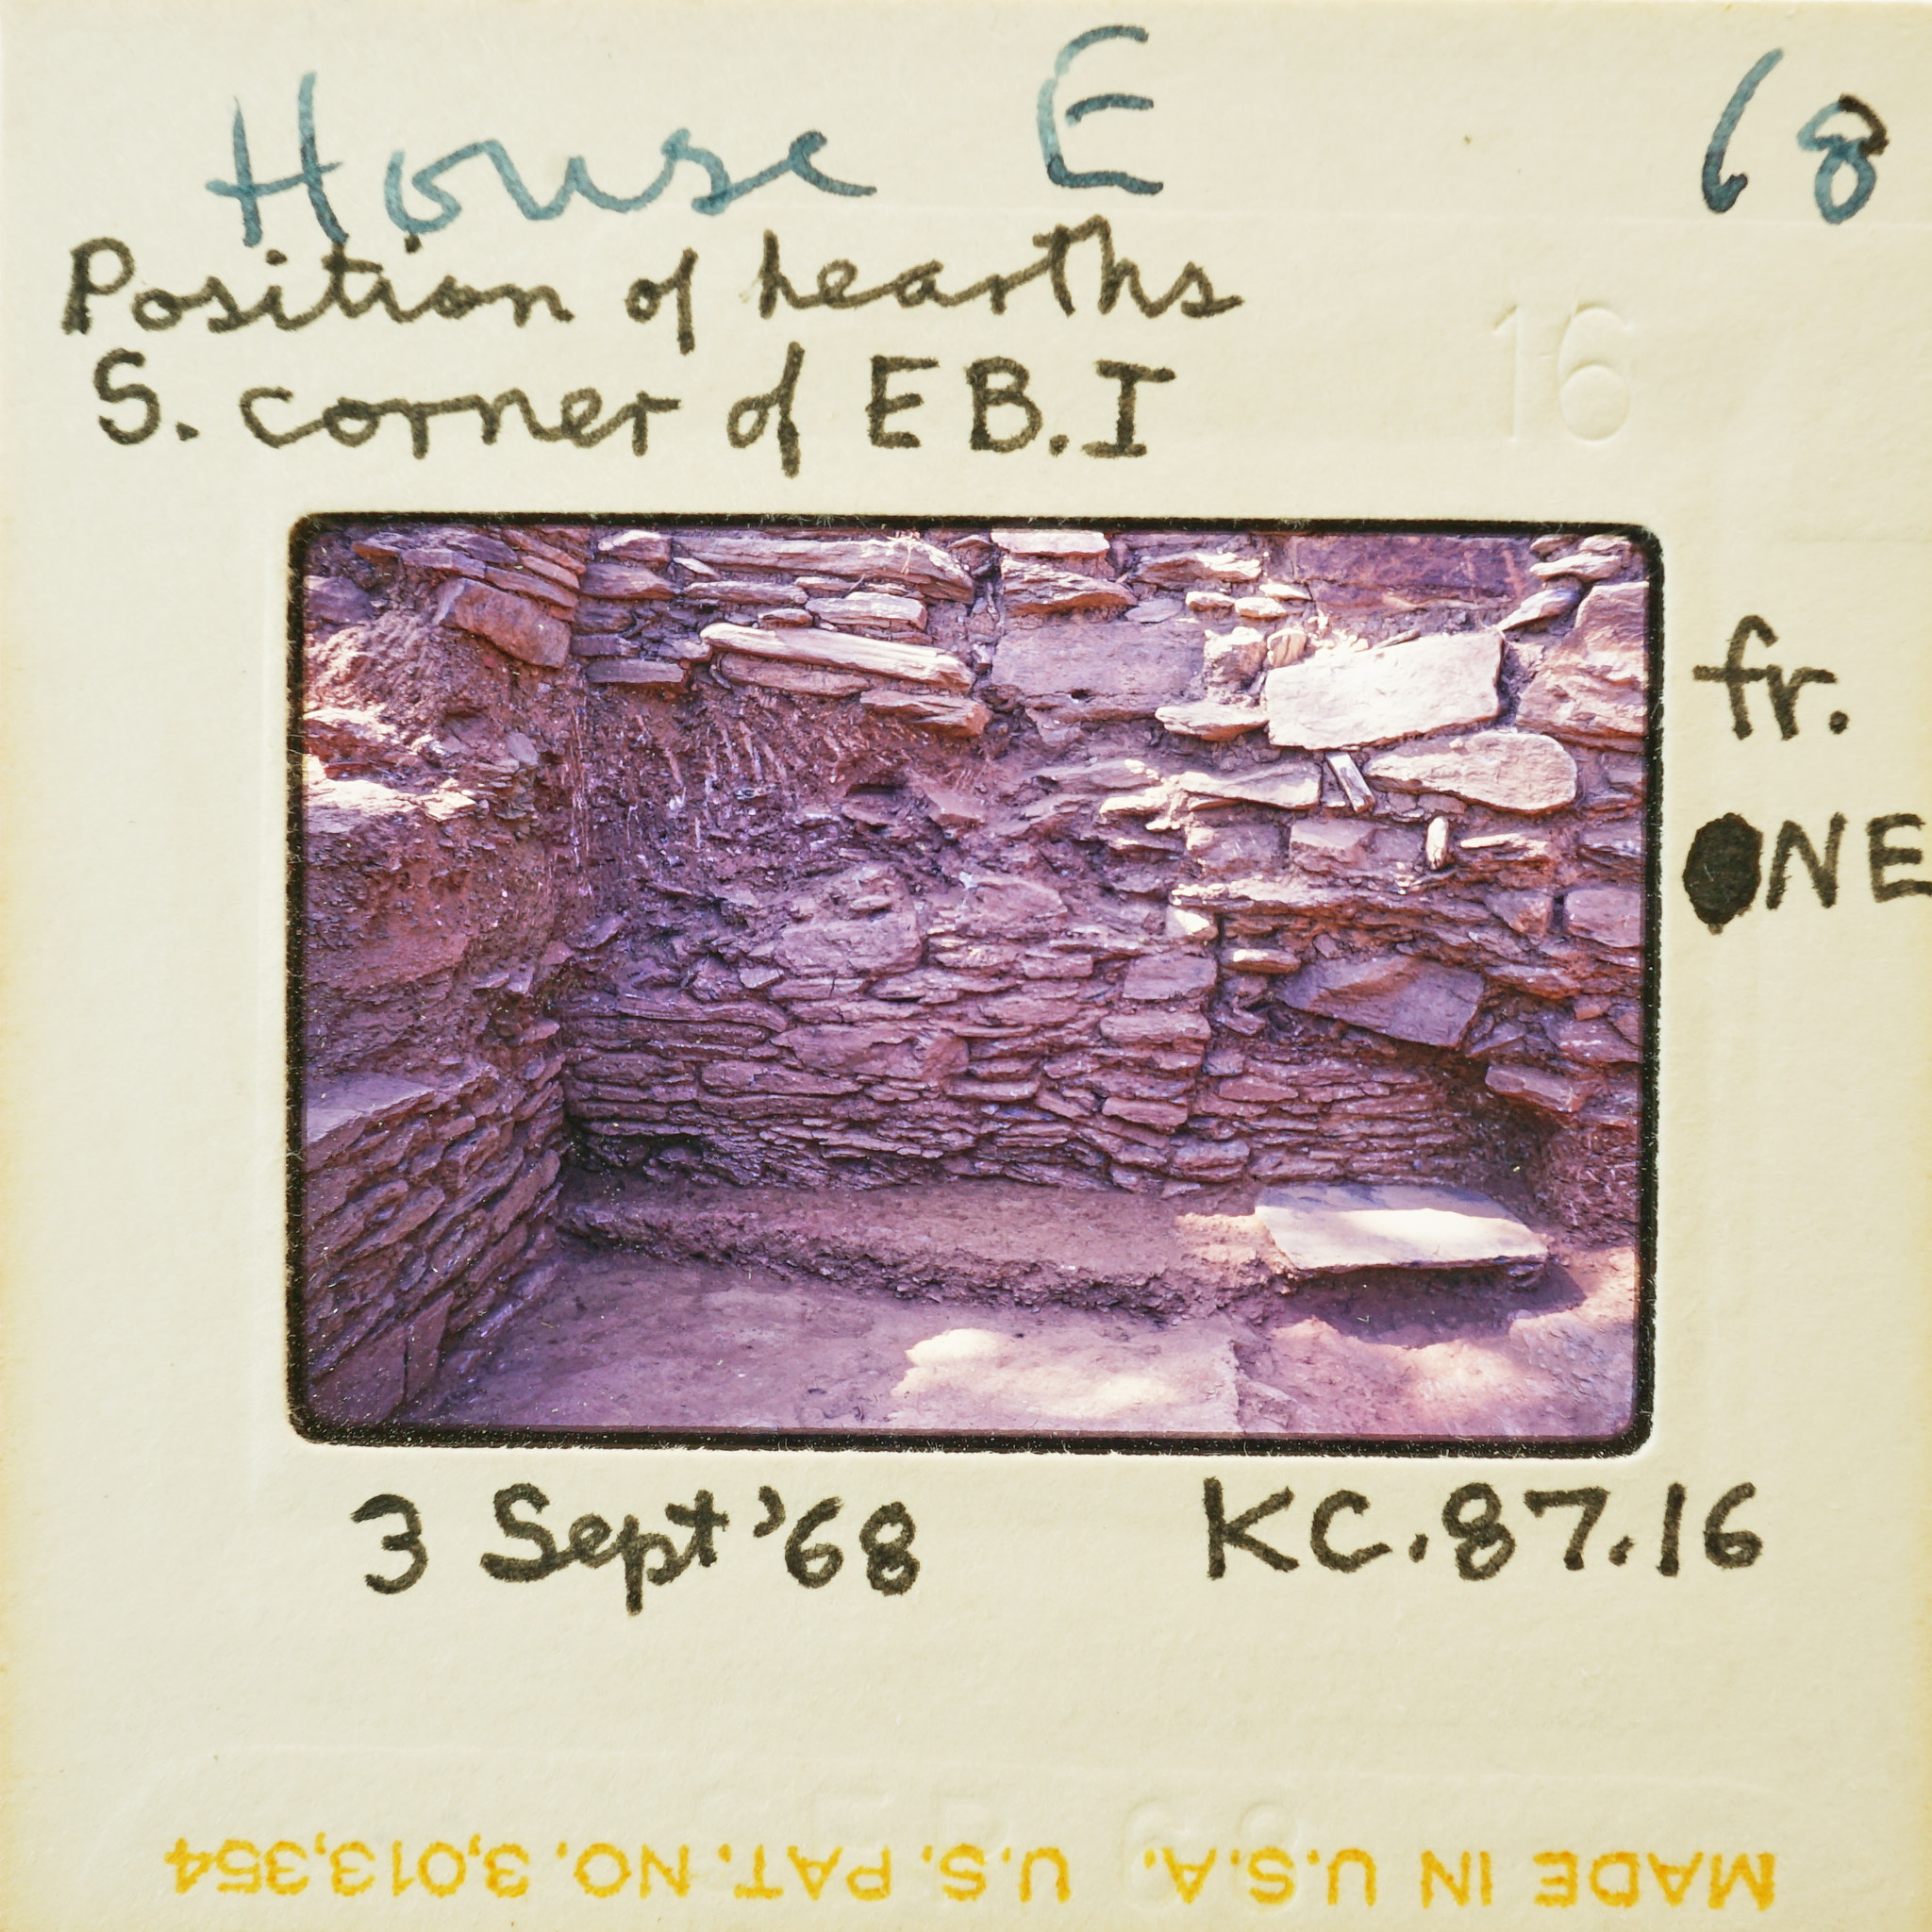 House E 68
Position of hearths
S. corner of EB.I
16
fr.
NE
3 Sept '68 KC.87.16
MADE IN U.S.A. U.S. PAT. NO. 3,013,354